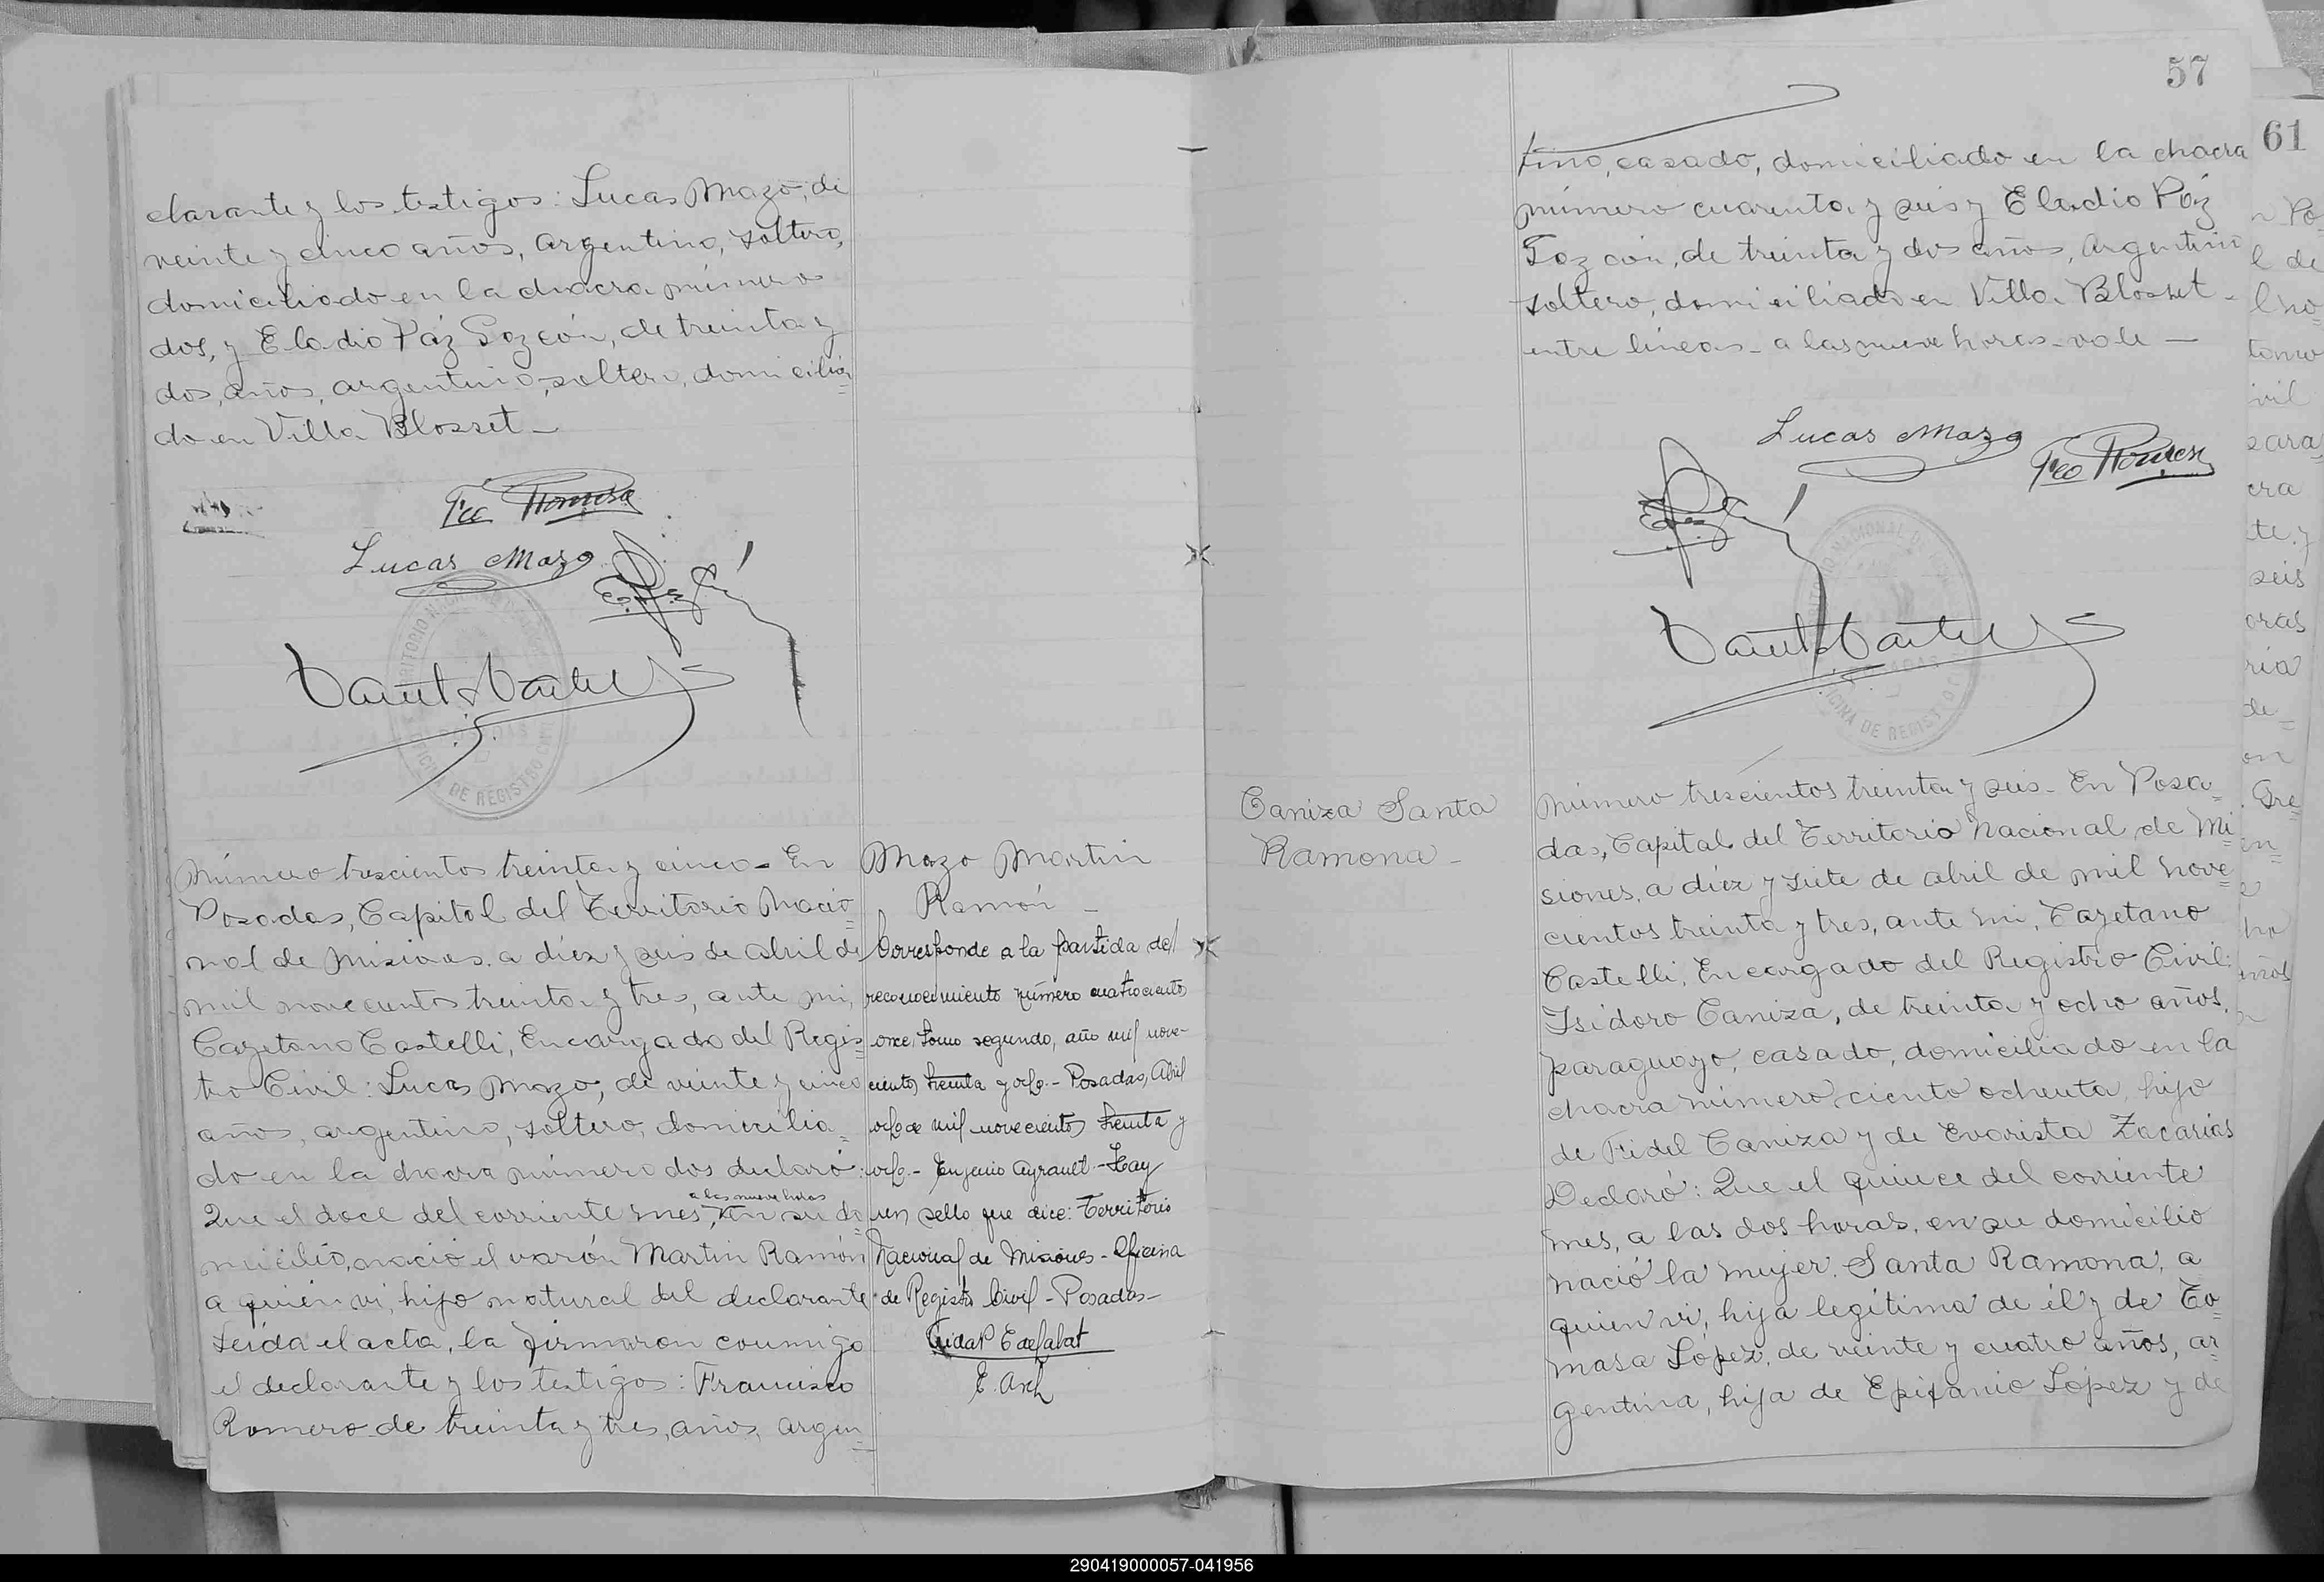 clarante y los testigos: Lucas Mazo, de
veinte y cinco años, argentino, soltero,
domiciliado en la chacra número
dos, y Eladio Páz Gozcón, de treinta y
dos, años, argentino, soltero, domicilia=
do en Villa Blosset_
Lucas Mazo
TERRITORIO NACIONAL DE
OFICINA DE REGISTRO CIVIL
Número trescientos treinta y cinco - En
Posadas, Capital del Territorio Nacio=
nal de Misiones, a diez y seis de abril de
mil novecientos treinta y tres, ante mi,
Cayetano Castelli, Encargado del Regis=
tro Civil: Lucas Mazo, de veinte y cinco
años, argentino, soltero, domicilia=
do en la chacra número dos declaró:
a las nueve horas
Que el doce del corriente mes, en su do=
micilio, nació el varón Martin Ramón
a quien vi, hijo natural del declarante.
Leida el acta, la firmaron conmigo
el declarante y los testigos: Francisco
Romero de treinta y tres, años, argen=
Mazo Martin
Ramón _
Corresponde a la partida de
reconocimiento número cuatrocientos
once, tomo segundo, año mil nove-
cientos treinta y ocho.- Posadas, Abril
ocho de mil novecientos treinta y
ocho.- Eugenio Ayrault.- Hay
un sello que dice: Territorio
Nacional de Misiones - Oficina
de Registro Civil - Posadas -
57
tino, casado, domiciliado en la chacra
número cuarenta y seis y Eladio Páz
Gozcón, de treinta y dos años, argentino
soltero, domiciliado en Villa Blosset -
entre líneas - a las nueve horas - vale —
Lucas Mazo
Fco Romero
OFICINA DE REGISTRO CIVIL
Caniza Santa
Ramona _
Número trescientos treinta y seis - En Posa=
das, Capital del Territorio Nacional de Mi=
siones, a diez y siete de abril de mil nove=
cientos treinta y tres, ante mi, Cayetano
Castelli, Encargado del Registro Civil:
Isidoro Caniza, de treinta y ocho años,
paraguayo, casado, domiciliado en la
chacra número ciento ochenta, hijo
de Fidel Caniza y de Evarista Zacarias
Declaró: Que el quince del corriente
mes, a las dos horas, en su domicilio
nació la mujer Santa Ramona, a
quien vi, hija legítima de él y de To=
masa López, de veinte y cuatro años, ar=
gentina, hija de Epifanio López y de
61
290419000057-041956